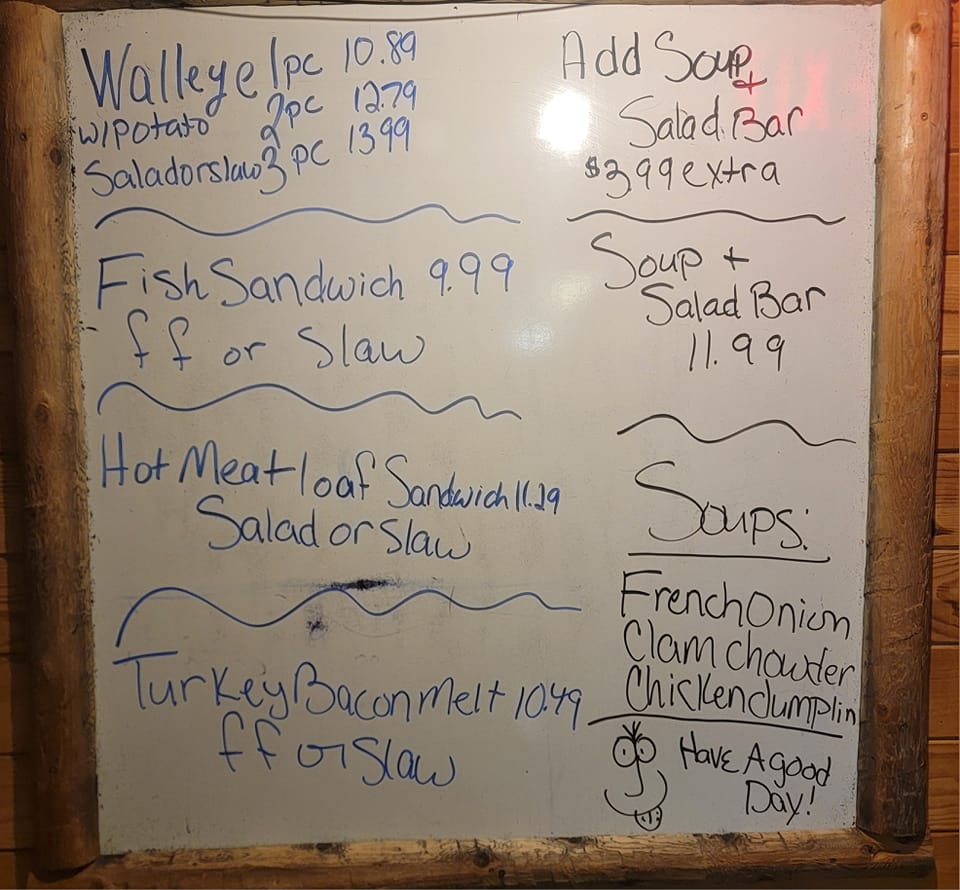 Walleye 1pc 10.89
w/Potato 2pc 12.79
Salad or slaw 3 pc 13 99
Fish Sandwich 9.99
ff or Slaw
Hot Meatloaf Sandwich 11.29
Salad or Slaw
Turkey Bacon Melt 10.49
ff or Slaw
Add Soup
+
Salad Bar
$3 99 extra
Soup +
Salad Bar
11.99
Soups:
French Onion
Clam chowder
Chicken dumplin
Have A good
Day!